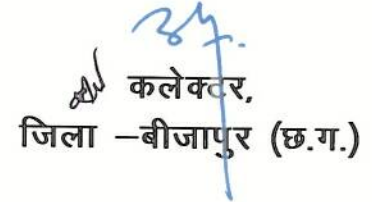 कलेक्टर,
जिला –बीजापुर (छ.ग.)